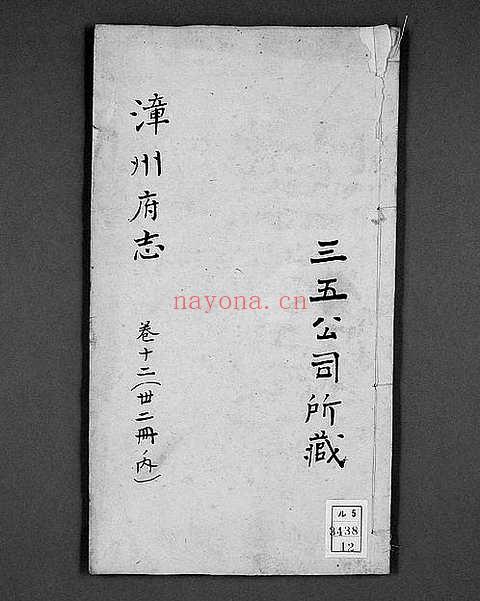 三五公司所藏
漳州府志
卷十二（廿二冊ノ内）
nayona.cn
ル5
3438
12